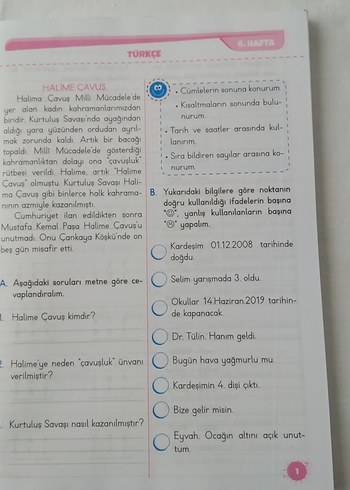 6. HAFTA
TÜRKÇE
HALİME ÇAVUŞ
Halima Çavuş Milli Mücadele'de
yer alan kadın kahramanlarımızdan
biridir. Kurtuluş Savaşı'nda ayağından
aldığı yara yüzünden ordudan ayrıl-
mak zorunda kaldı. Artık bir bacağı
topaldı. Milli Mücadele'de gösterdiği
kahramanlıktan dolayı ona "çavuşluk"
rütbesi verildi. Halime, artık "Halime
Çavuş" olmuştu. Kurtuluş Savaşı Hali-
ma Çavuş gibi binlerce halk kahrama-
nının azmiyle kazanılmıştı.
Cumhuriyet ilan edildikten sonra
Mustafa Kemal Paşa Halime Çavuş'u
unutmadı. Onu Çankaya Köşkü'nde on
beş gün misafir etti.
A. Aşağıdaki soruları metne göre ce-
vaplandıralım.
1. Halime Çavuş kimdir?
2. Halime'ye neden "çavuşluk" ünvanı
verilmiştir?
Kurtuluş Savaşı nasıl kazanılmıştır?
• Cümlelerin sonuna konurum.
• Kısaltmaların sonunda bulu-
nurum.
• Tarih ve saatler arasında kul-
lanırım.
• Sıra bildiren sayılar arasına ko-
nurum.
B. Yukarıdaki bilgilere göre noktanın
doğru kullanıldığı ifadelerin başına
"☺", yanlış kullanılanların başına
"☹" yapalım.
Kardeşim 01.12.2008 tarihinde
doğdu.
Selim yarışmada 3. oldu.
Okullar 14.Haziran.2019 tarihin-
de kapanacak.
Dr. Tülin. Hanım geldi.
Bugün hava yağmurlu mu.
Kardeşimin 4. dişi çıktı.
Bize gelir misin.
Eyvah. Ocağın altını açık unut-
tum.
1